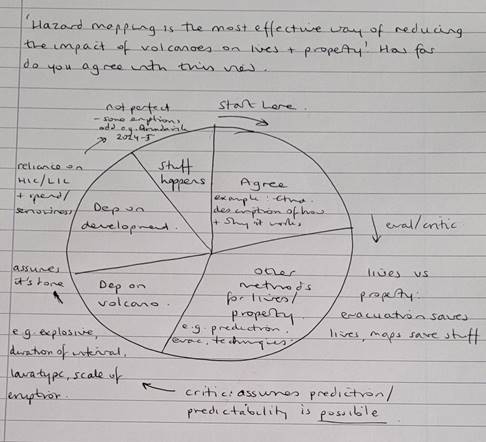 'Hazard mapping is the most effective way of reducing
the impact of volcanoes on lives + property'. How far
do you agree with this view.
Start here.
not perfect
- some eruptions
odd e.g. Grindavik
2024-5
Stuff
happens
Agree
example: Etna.
description of how
+ why it works
eval/critic
lives vs
property:
evacuation saves
lives, maps save stuff
other
methods
for lives/
property.
e.g. prediction.
evac, techniques.
critic: assumes prediction/
predictability is possible.
Dep on
volcano.
e.g. explosive,
duration of interval,
lava type, scale of
eruption.
assumes
it's done
Dep on
development.
reliance on
HIC/LIC
+ spend/
seriousness